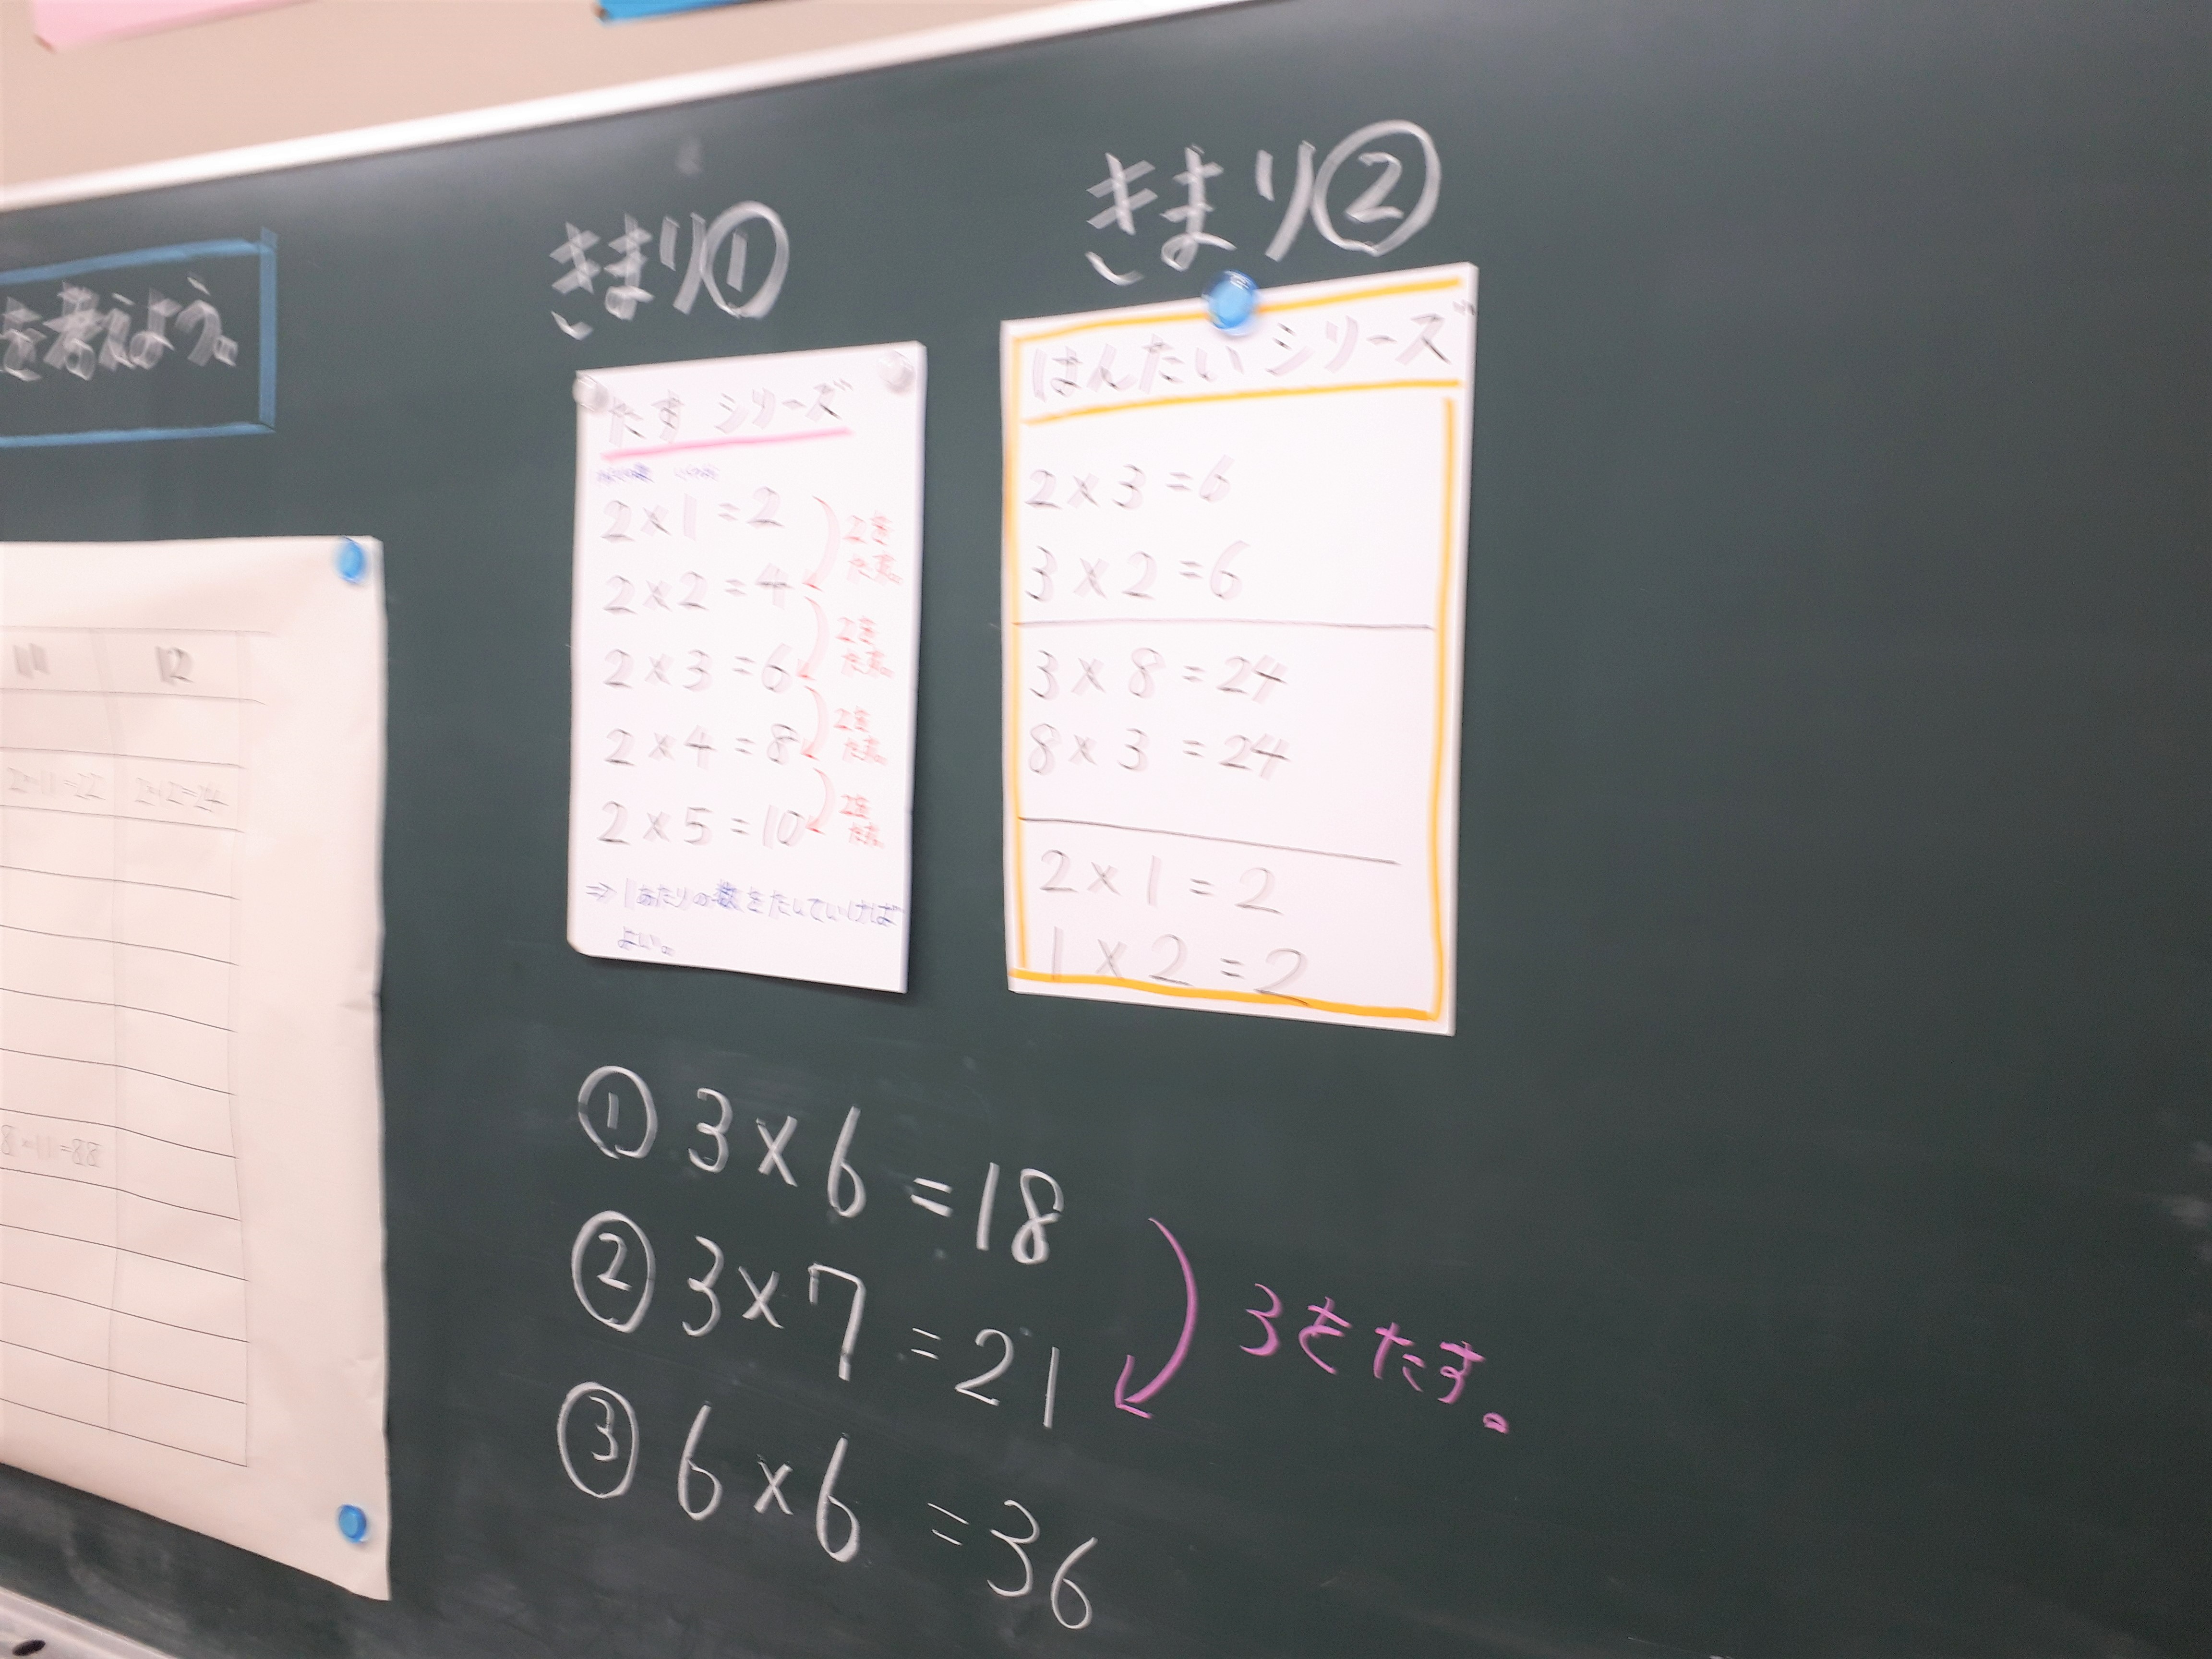 を考えよう。
11 12
2×11=22 2×12=24
8×11=88
きまり①
たす シリーズ
2×1=2
2をたす。
2×2=4
2をたす。
2×3=6
2をたす。
2×4=8
2をたす。
2×5=10
⇒1あたりの数をたしていけば
よい。
きまり②
はんたいシリーズ
2×3=6
3×2=6
3×8=24
8×3=24
2×1=2
1×2=2
①3×6=18
②3×7=21
3をたす。
③6×6=36